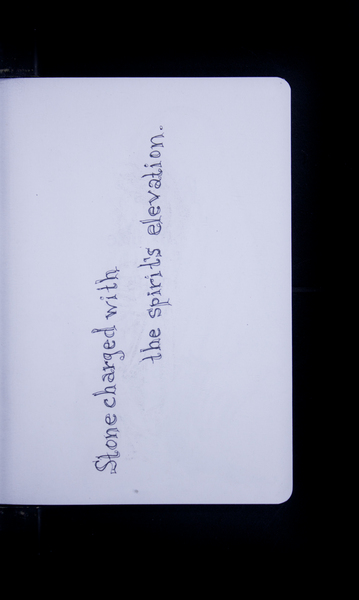 Stone charged with
the spirit's elevation.